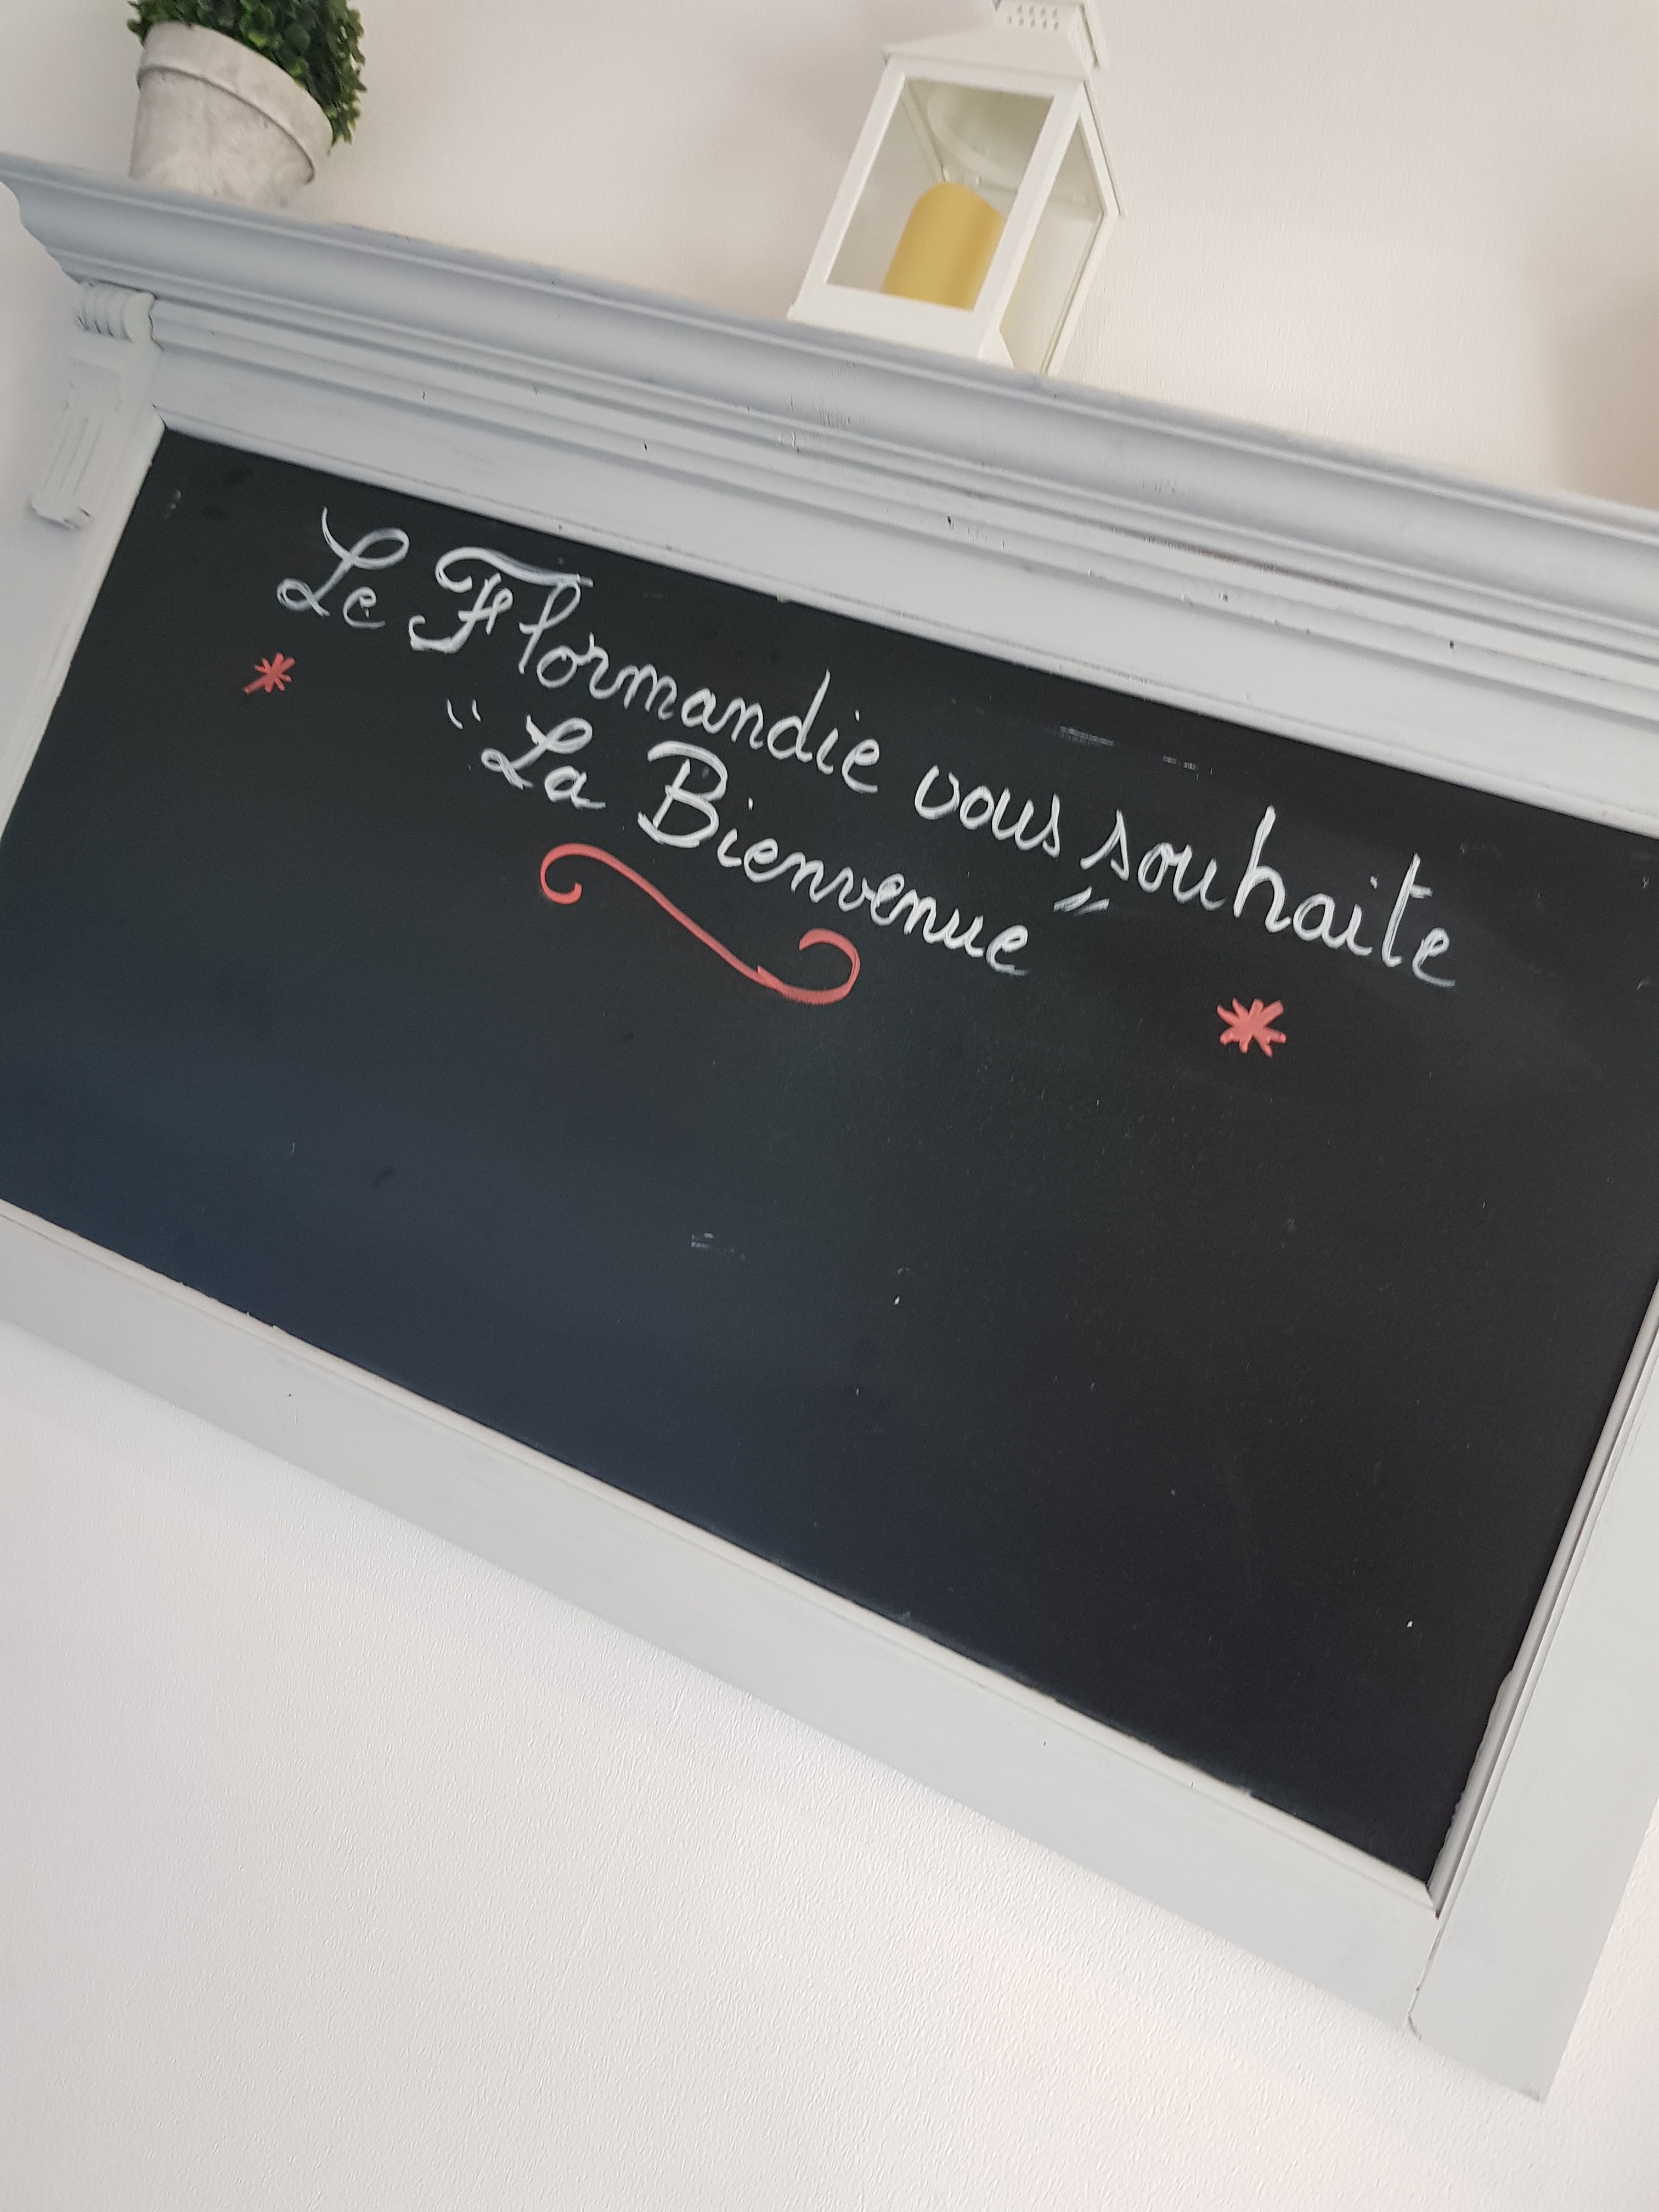 Le Flormandie vous souhaite
"La Bienvenue"